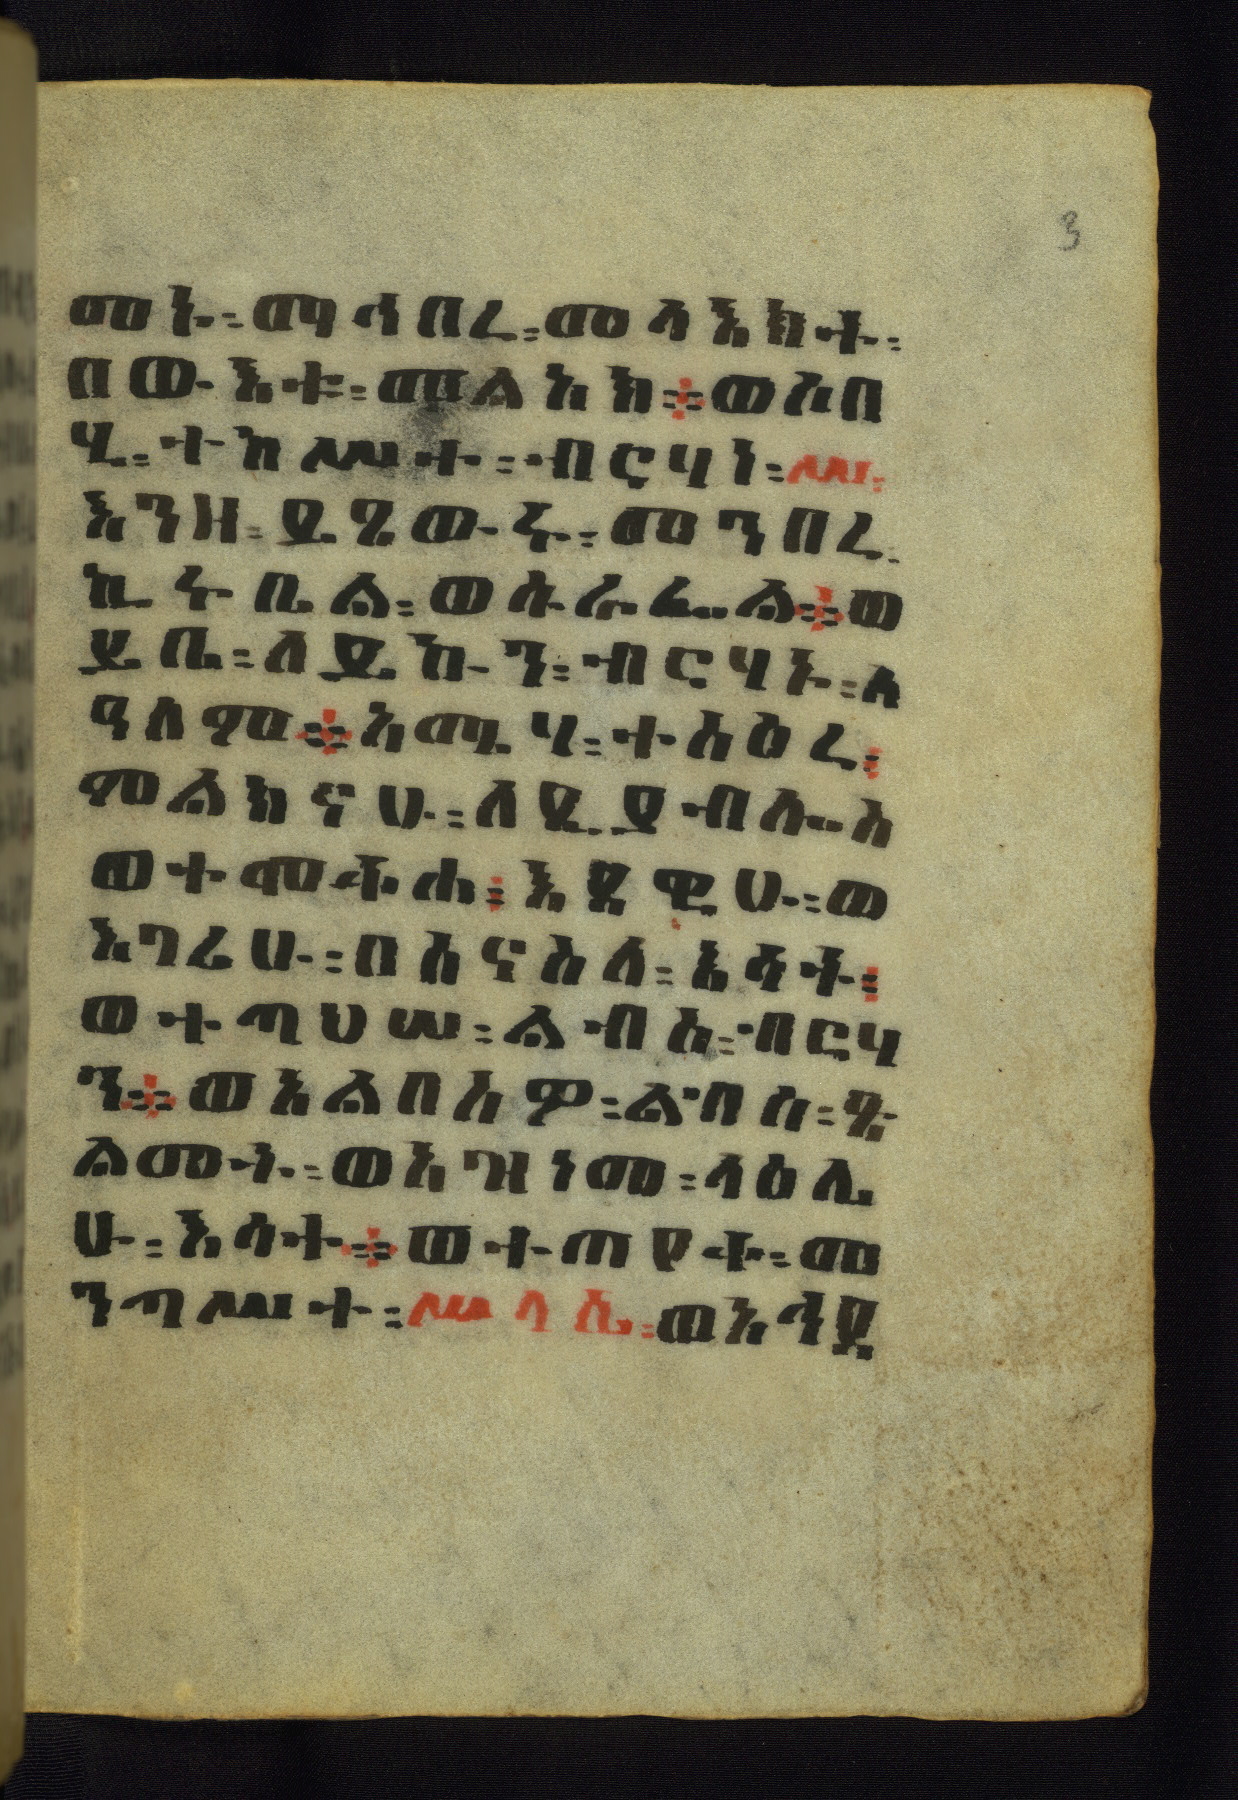 መኑ፡ማኅበረ፡መላእክት፡
በውእቱ፡መልአክ፨ወሶበ
ሂ፡ተከሥተ፡ብርሃነ፡
እንዘ፡ይጼውሩ፡መንበረ፡
ኪሩቤል፡ወሱራፌል፨ወ
ይቤ፡ለይኩን፡ብርሃኑ፡ለ
ዓለም፨አሜሃ፡ተሰዕረ፡
ምልክናሁ፡ለዲያብሎስ
ወተሞቅሐ፡እደዊሁ፡ወ
እገሪሁ፡በሰናስለ፡እሳት፡
ወተጣህሠ፡ልብሰ፡ብርሃ
ን፨ወአልበሰዎ፡ልብሰ፡ጽ
ልመት፡ወአዝነመ፡ላዕሌ
ሁ፡እሳተ፨ወተጠየቀ፡መ
ንጣሥተ፡ሥላሴ፡